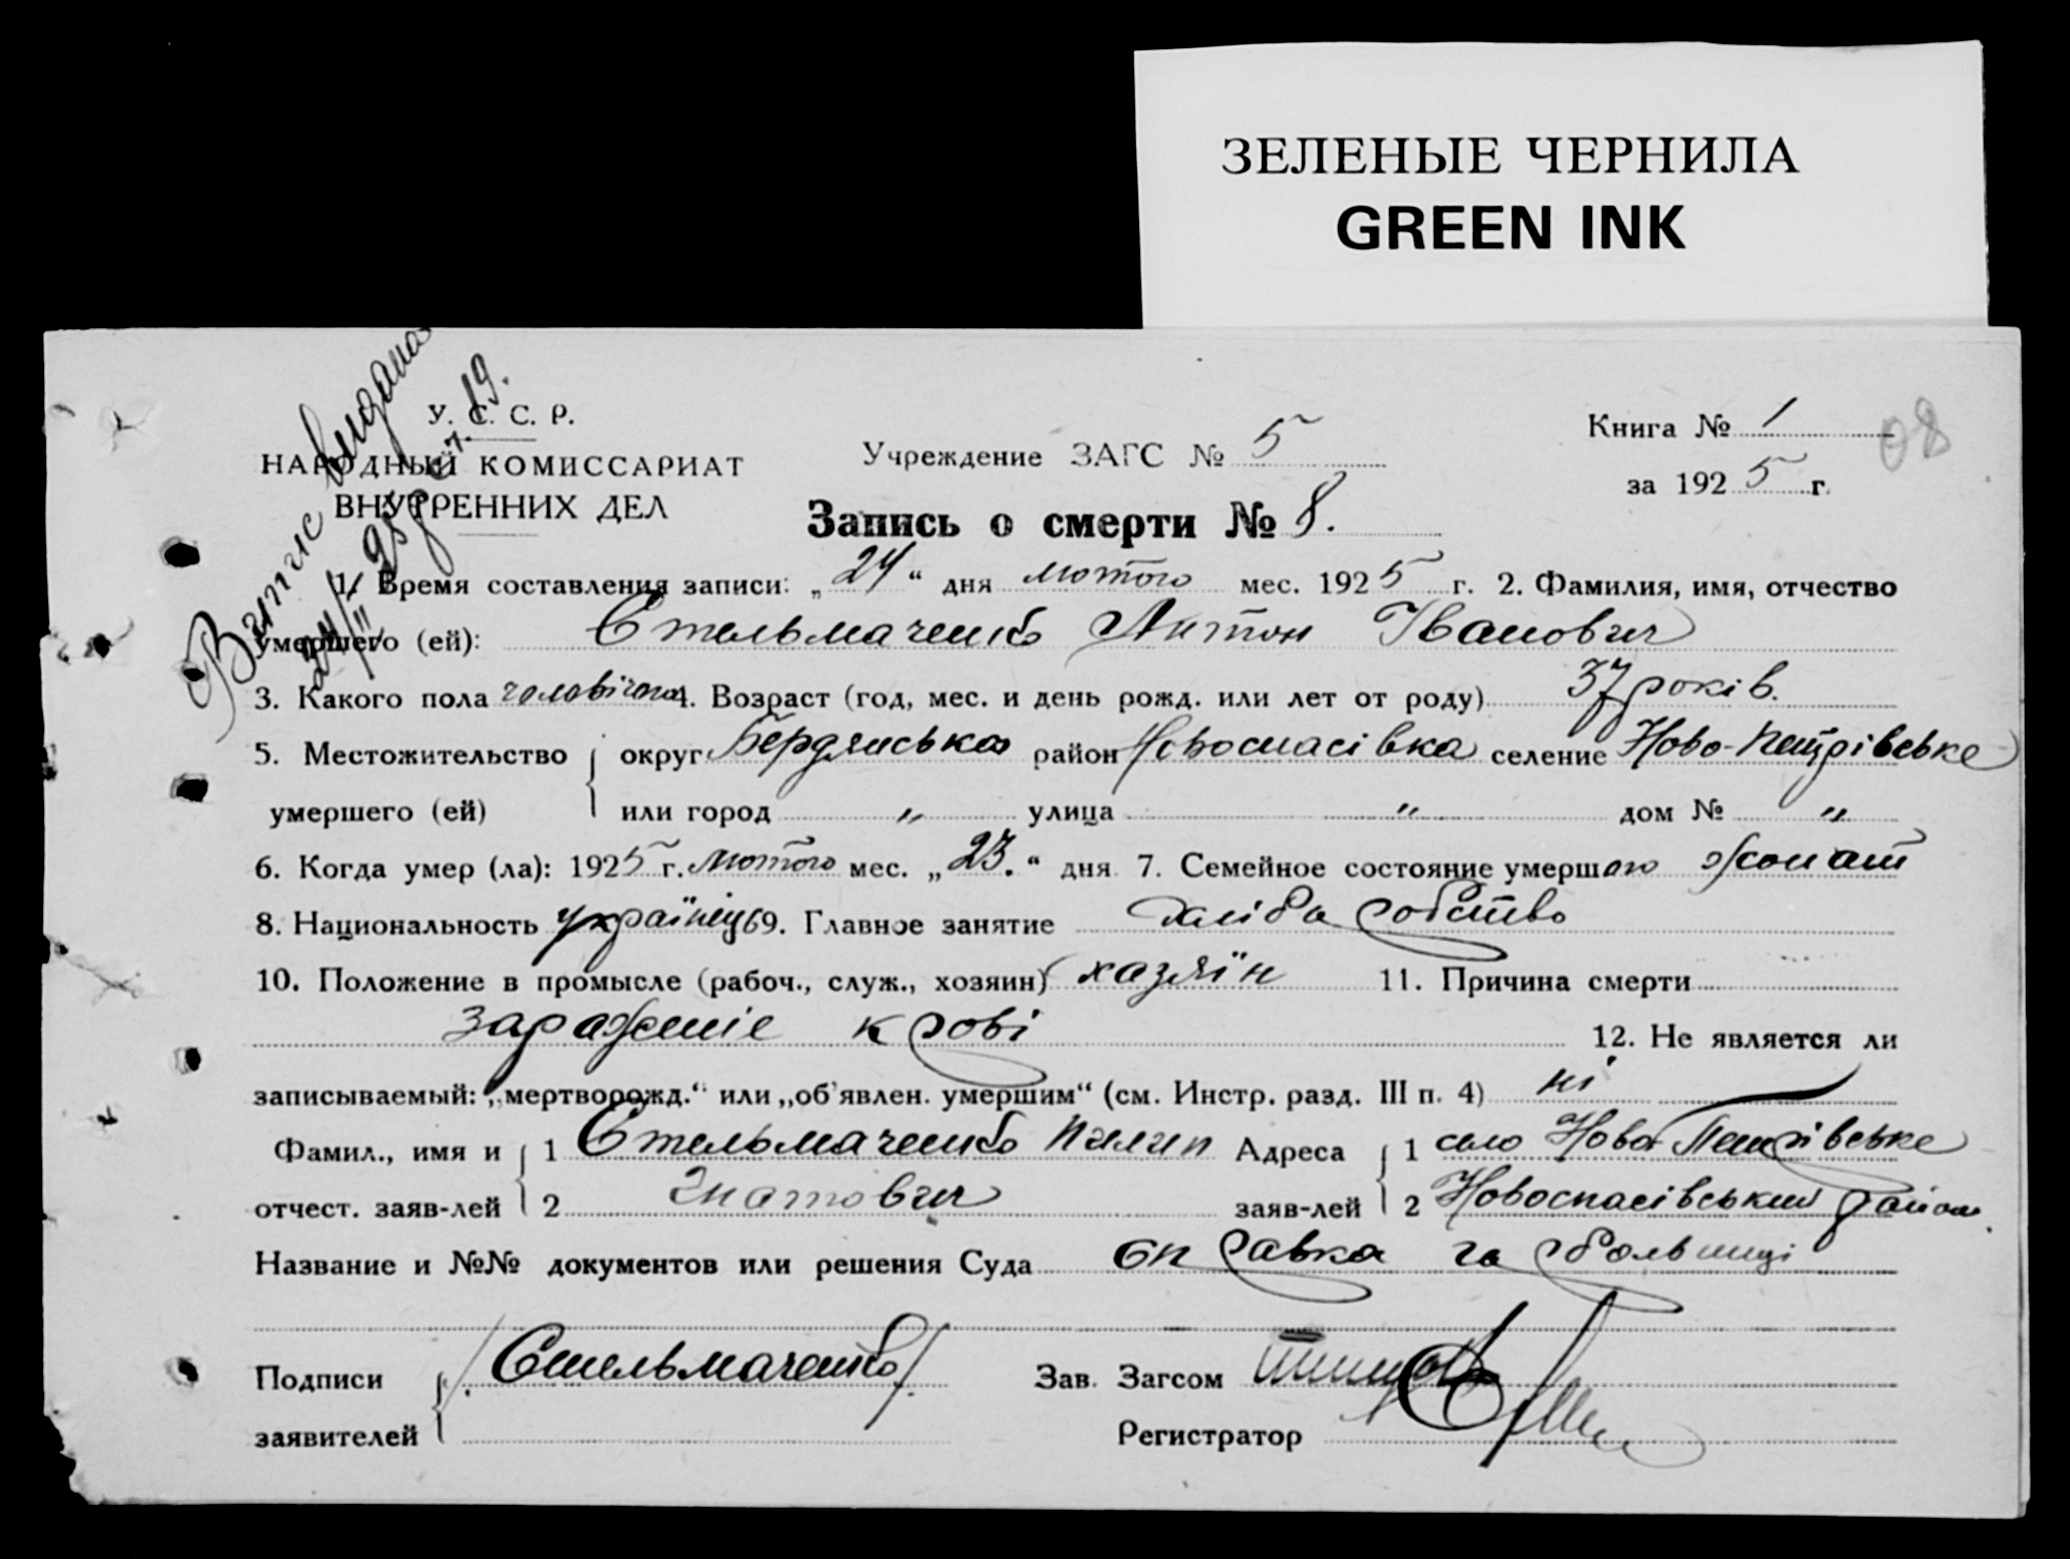 ЗЕЛЕНЫЕ ЧЕРНИЛА
GREEN INK
Витис видана
24/II 25 р. ст. 19.
У. С. С. Р.
НАРОДНЫЙ КОМИССАРИАТ
ВНУТРЕННИХ ДЕЛ
Учреждение ЗАГС № 5
Книга № 1
08
за 1925 г.
Запись о смерти № 8.
1. Время составления записи: „24“ дня лютого мес. 1925 г. 2. Фамилия, имя, отчество
умершего (ей): Стельмаченко Антон Іванович
3. Какого пола чоловічого 4. Возраст (год, мес. и день рожд. или лет от роду) 37 років.
5. Местожительство округ Бердянська район Новоспасівка селение Ново-Петрівське
умершего (ей) или город „ улица „ дом № „
6. Когда умер (ла): 1925 г. лютого мес. „23.“ дня 7. Семейное состояние умершого жонат
8. Национальность українець 9. Главное занятие хліборобство
10. Положение в промысле (рабоч., служ., хозяин) хазяїн 11. Причина смерти
зараженіе крові 12. Не является ли
записываемый: „мертворожд.“ или „об'явлен. умершим“ (см. Инстр. разд. III п. 4) ні
Фамил., имя и 1 Стельмаченко Пилип Адреса 1 село Ново Петрівське
отчест. заяв-лей 2 Гнатович заяв-лей 2 Новоспасівський район.
Название и №№ документов или решения Суда справка з больниці
Подписи /. Стельмаченко/. Зав. Загсом
заявителей Регистратор